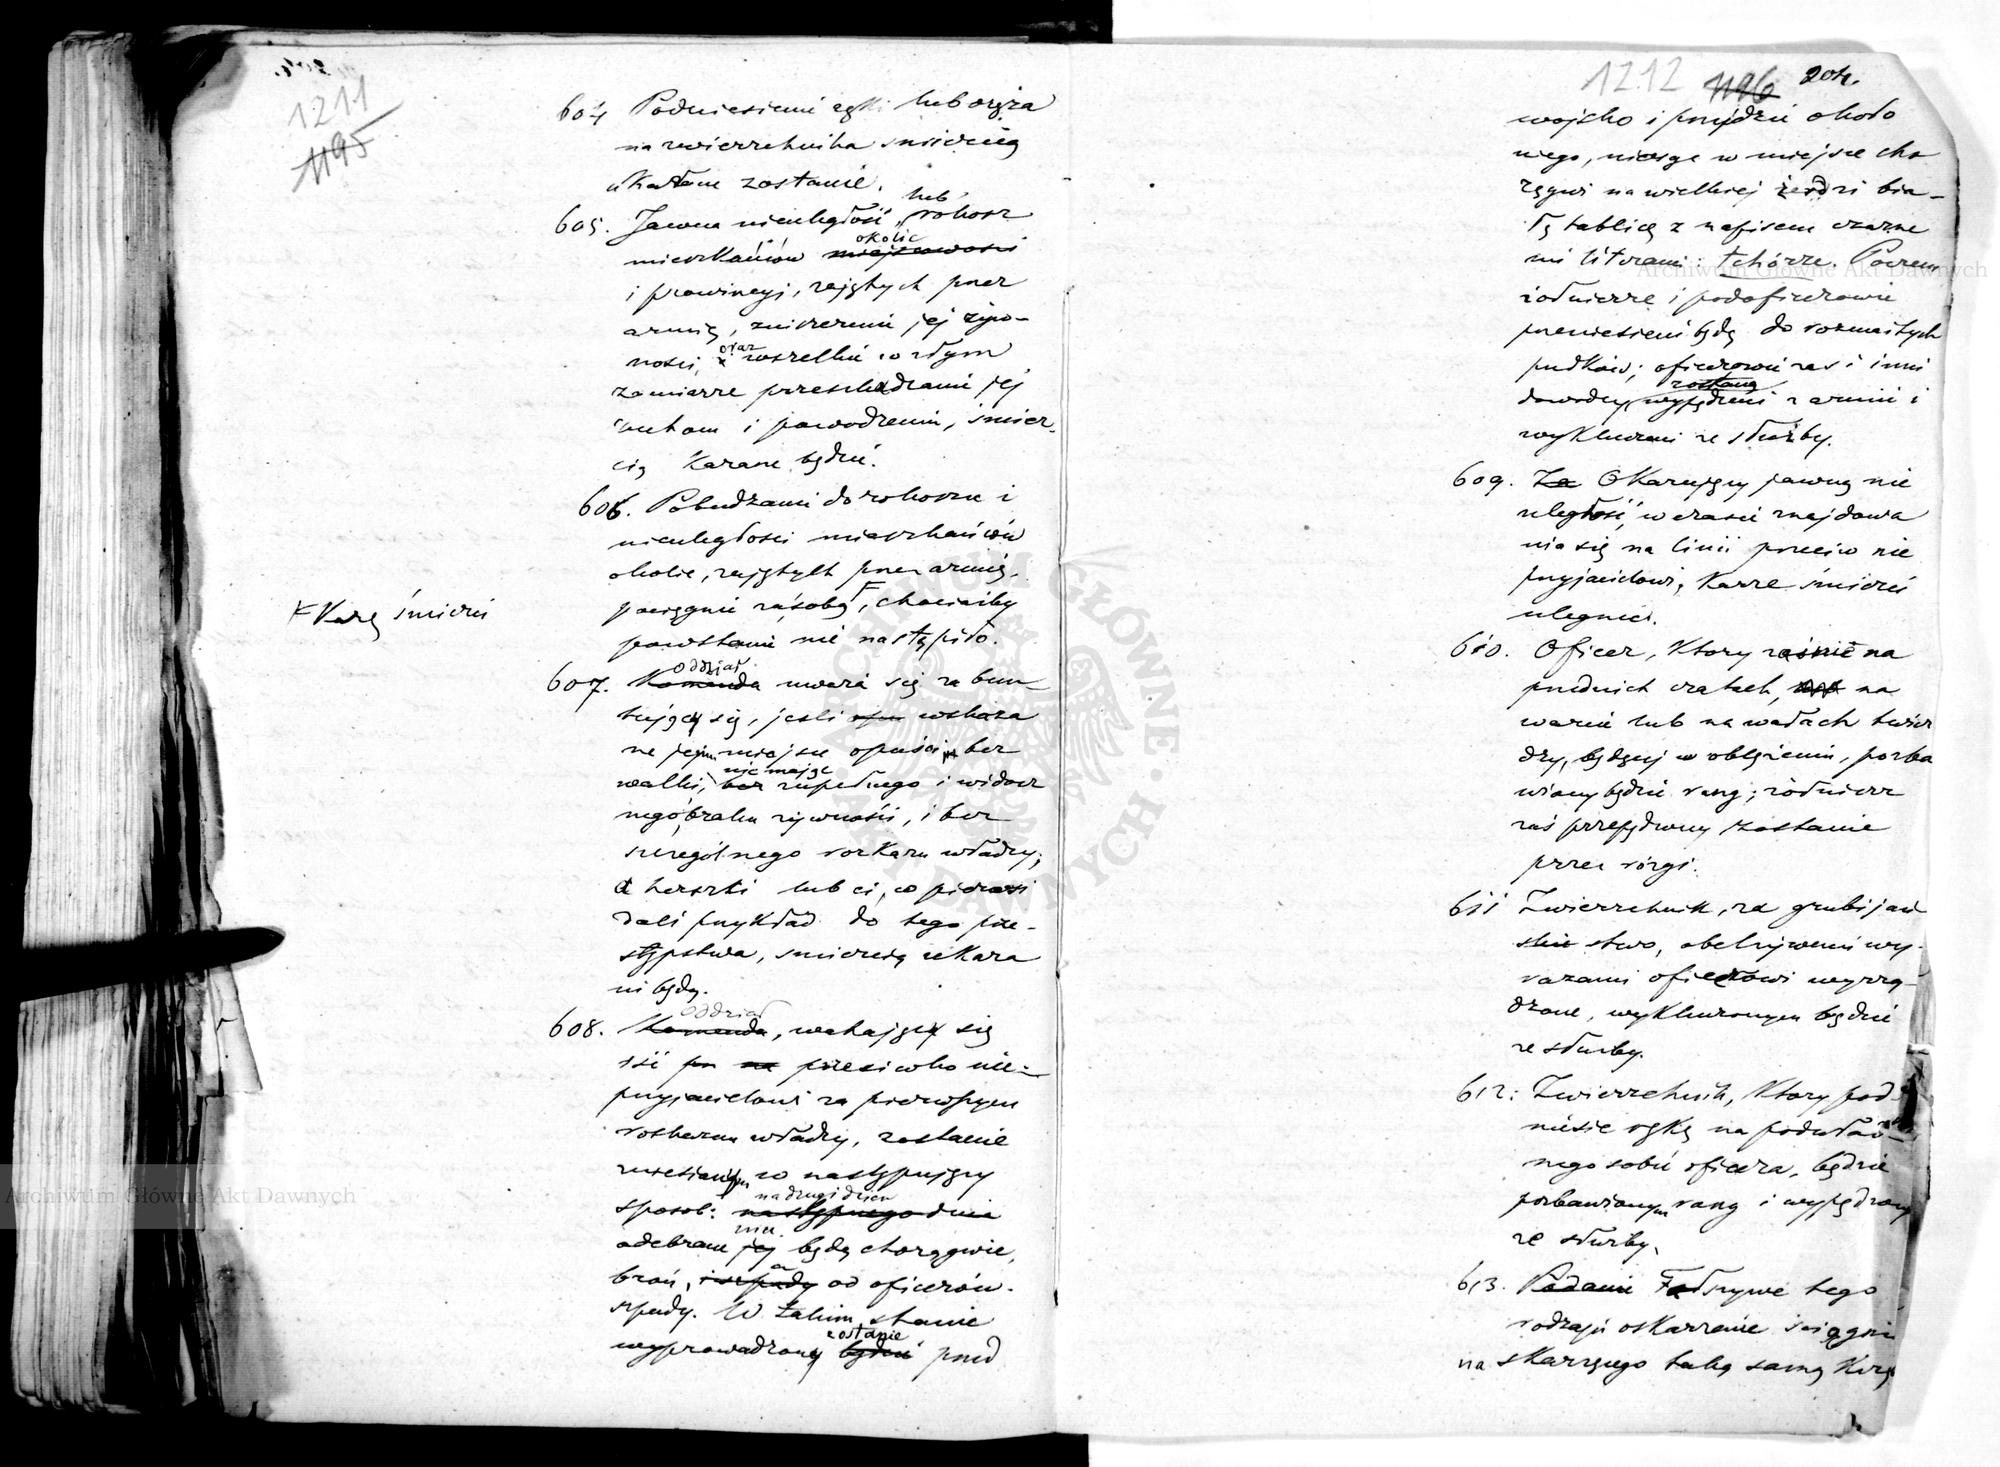 1211
1195
604 Podniesienie ręki lub oręża
na zwierzchnika śmiercią
ukarane zostanie.
605. Jawna nieuległość, lub rokosz
mieszkańców miejscowości okolic
i prowincyj, zajętych przez
armię, zniszczenie jej żyw-
ności, oraz wszelkie w złym
zamiarze przeszkadzanie jej
ruchom i powodzeniu, śmier-
cią karane będzie.
606. Pobudzanie do rokoszu i
nieuległości mieszkańców
okolic, zajętych przez armię,
pociągnie za sobą F, chociażby
powstanie nie nastąpiło.
F Karę śmierci
607. Komenda Oddział uważa się za bun-
tujący się, jeśli wskaza
ne jemu miejsce opuści bez
walki, bez nie mając zupełnego i widocz
nego braku żywności, i bez
szczególnego rozkazu władzy;
a herszti lub ci, co pierwsi
dali przykład do tego prze-
stępstwa, śmiercią ukara
ni będą.
608. Komenda Oddział, wahający się
iść na przeciwko nie-
przyjacielowi za pierwszym
rozkazem władzy, zostanie
zniesionym w następujący
sposób: następnego dnia na drugi dzień
odebrane jej mu będą chorągwie,
broń, i szpady a od oficerów
szpady. W takim stanie
wyprowadzony będzie zostanie przed
1212 1196 204.
wojsko i przejdzie około
niego, niosąc w miejsce cho
rągwi na wielkiej żerdzi bia-
łą tablicę z napisem czarne
mi literami: tchórze. Poczem
żołnierze i podoficerowie
przeniesieni będą do rozmaitych
pułków; oficerowie zaś i inni
dowódcy zostaną wypędzeni z armii i
wykluczeni ze służby.
609. Za Okazujący jawną nie
uległość, w czasie znajdowa
nia się na linii przeciw nie
przyjacielowi, karze śmierci
ulegnie.
610. Oficer, który zaśnie na
przednich czatach, na
warcie lub na wałach twier
dzy, będącej w oblężeniu, pozba
wiony będzie rang; żołnierz
zaś przepędzony zostanie
przez rózgi.
611 Zwierzchnik, za grubijań
stwo, obelżywemi wy-
razami oficerowi wyrzą-
dzone, wykluczonym będzie
ze służby.
612: Zwierzchnik, który pod-
niesie rękę na podwład-
nego sobie oficera, będzie
pozbawionym rang i wypędzony
ze służby.
613. Podanie Fałszywe tego
rodzaju oskarżenie ściągnie
na skarżącego taką samą karę
Archiwum Główne Akt Dawnych
Archiwum Główne Akt Dawnych
ARCHIWUM GŁÓWNE AKT DAWNYCH